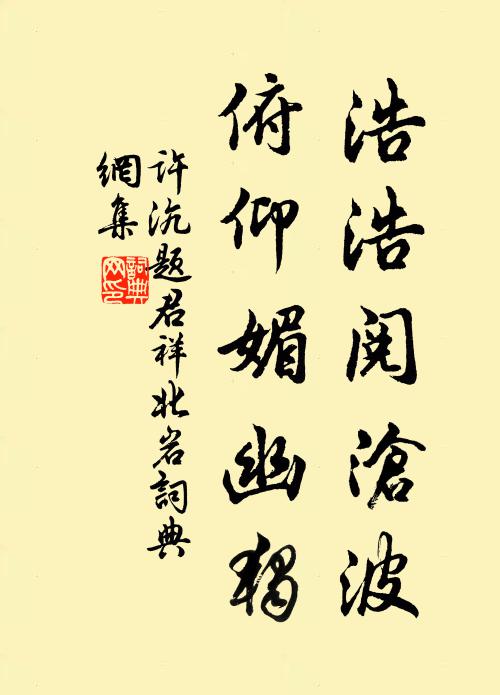 浩浩阅滄波
俯仰媚幽獨
许沆题君祥北岩詞典
網集
詞典网印